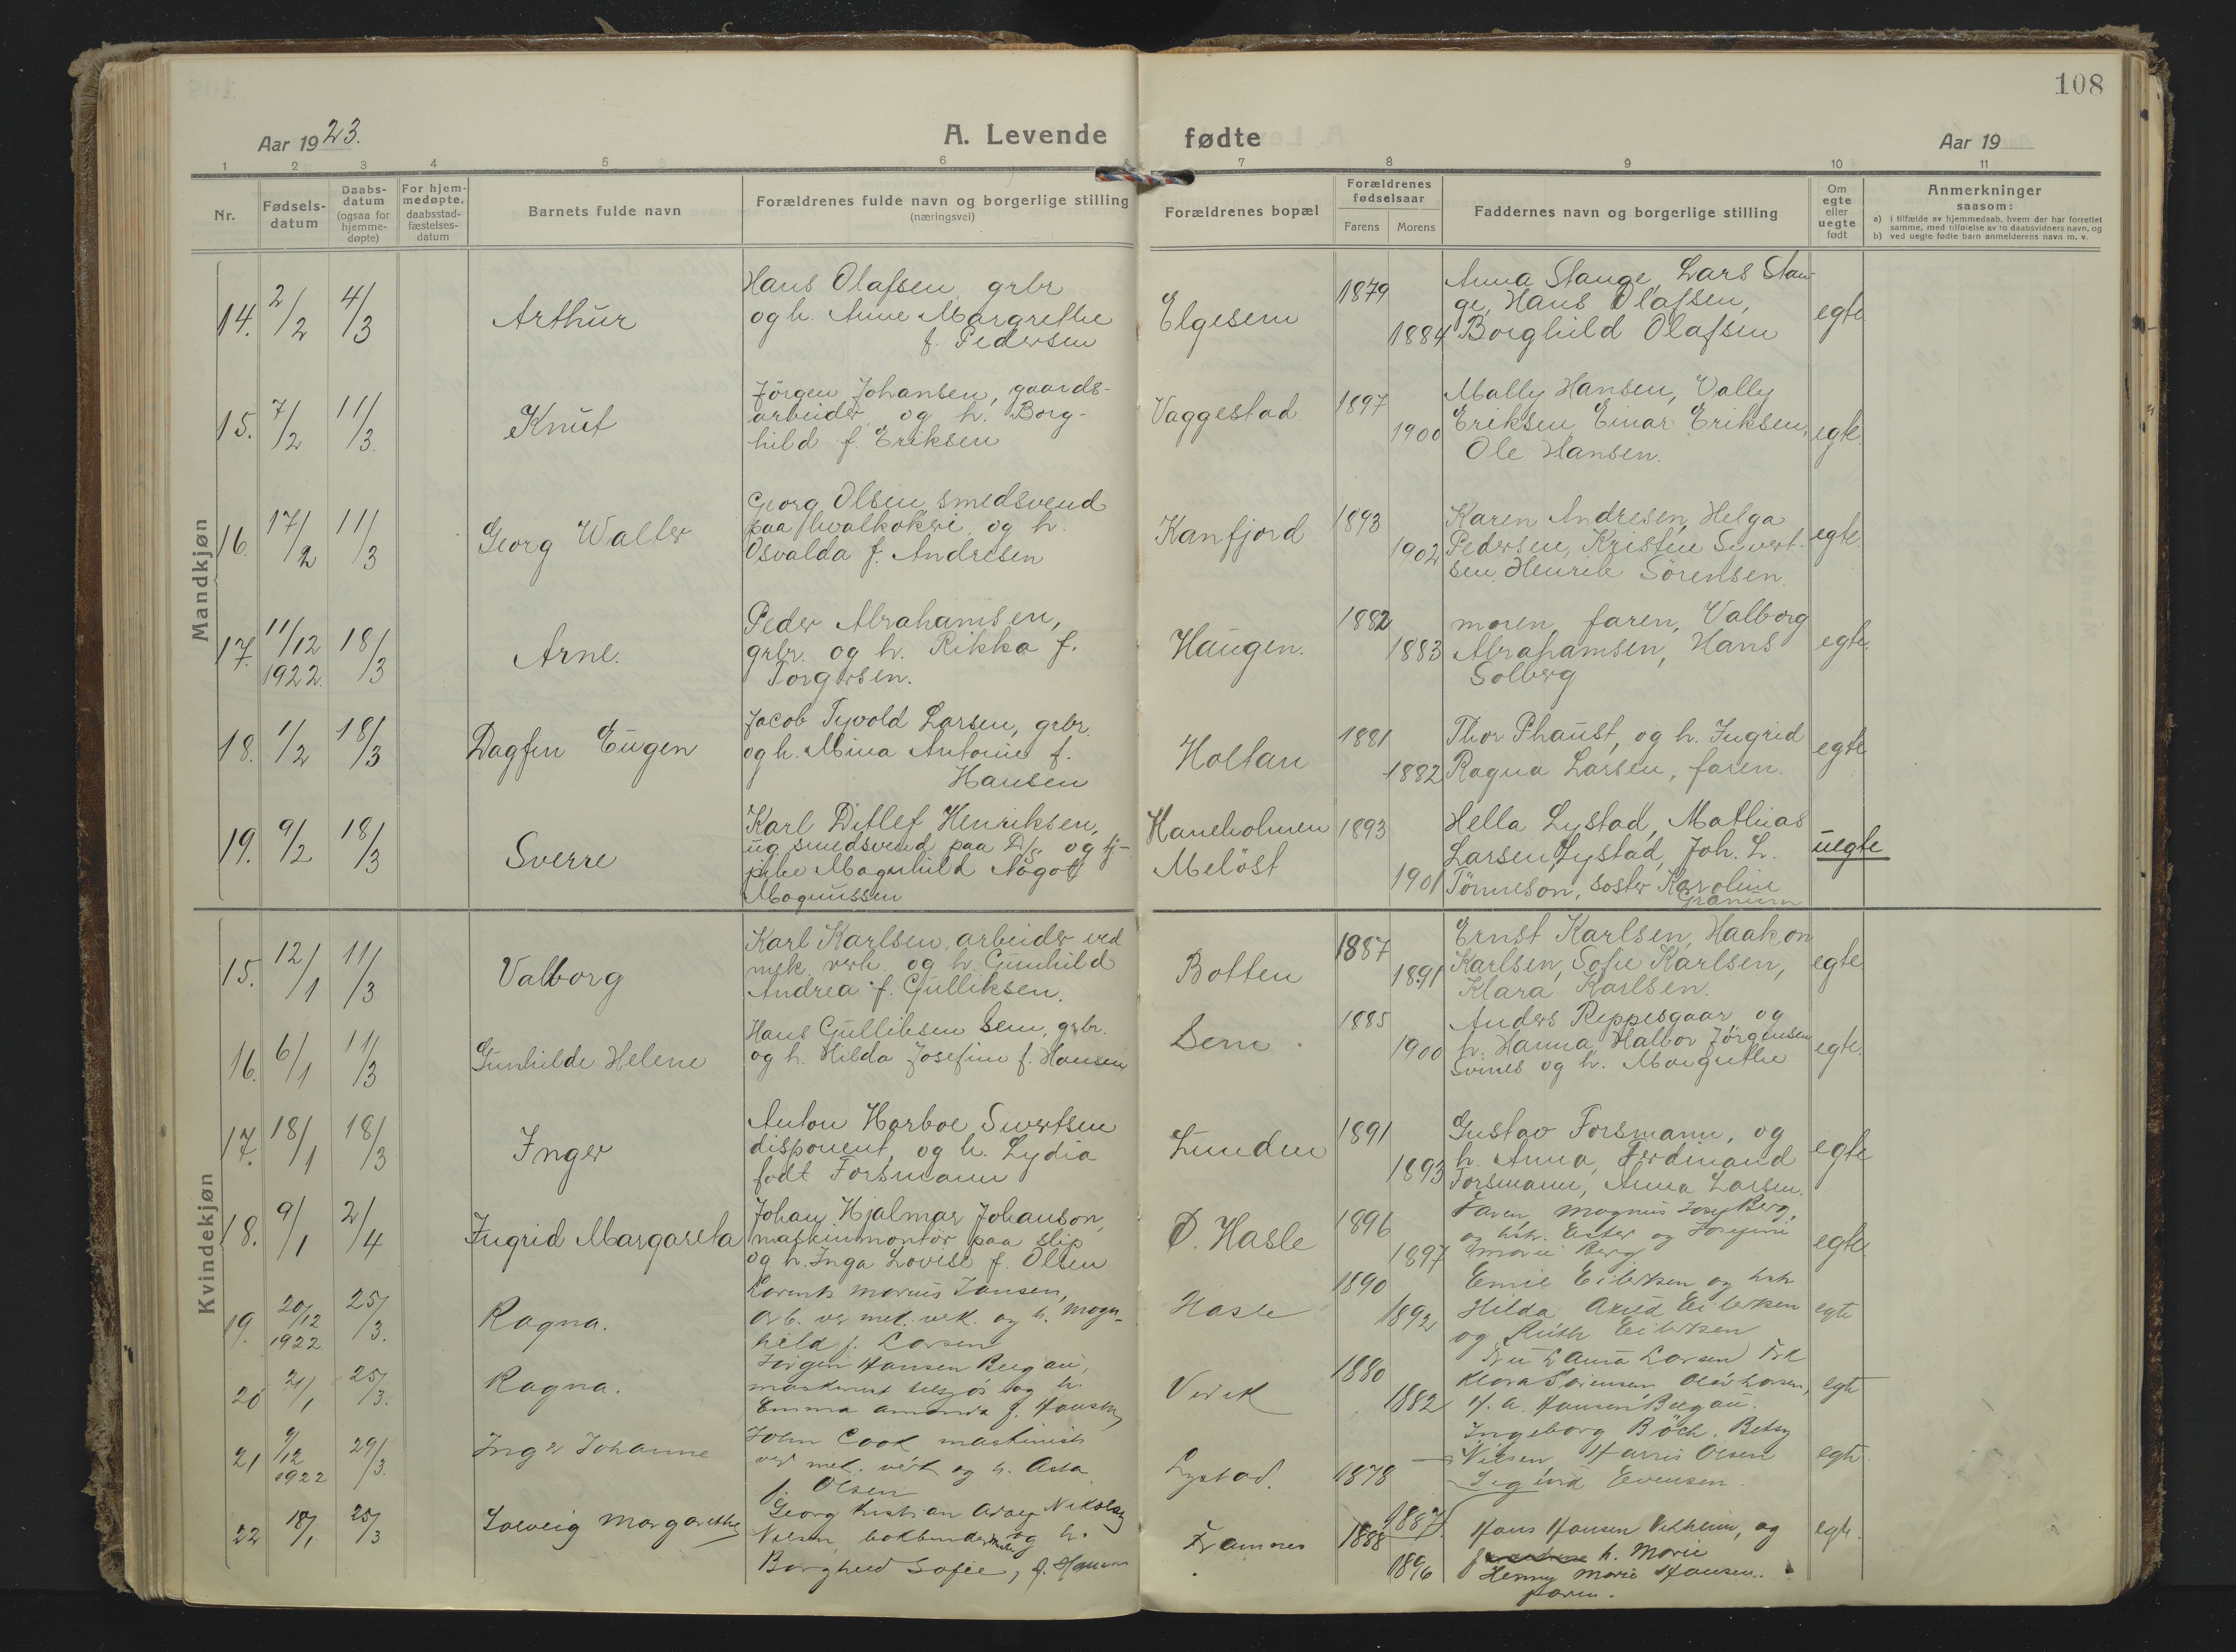 108
Aar 1923.
A. Levende fødte
Aar 19
1 2 3 4 5 6 7 8 9 10 11
Nr.
Fødsels-
datum
Daabs-
datum
(ogsaa for
hjemme-
døpte)
For hjem-
medøpte.
daabsstad-
fæstelses-
datum
Barnets fulde navn
Forældrenes fulde navn og borgerlige stilling
(næringsvei)
Forældrenes bopæl
Forældrenes
fødselsaar
Farens Morens
Faddernes navn og borgerlige stilling
Om
egte
eller
uegte
født
Anmerkninger
saasom:
a) i tilfælde av hjemmedaab, hvem der har forrettet
samme, med tilføielse av to daabsvidners navn, og
b) ved uegte fødte barn anmelderens navn m. v.
Mandkjøn
14. 2/2 4/3
Arthur
Hans Olafsen, grbr
og h. Anne Margrethe
f. Pedersen
Elgesem
1879
1884
Anna Stange, Lars Stan-
ge, Hans Olafsen,
Borghild Olafsen
egte
15. 7/2 11/3.
Knut
Jörgen Johansen, gaards-
arbeider og h. Borg-
hild f. Eriksen
Vaggestad
1897
1900
Mally Hansen, Vally
Eriksen, Einar Eriksen,
Ole Hansen.
egte.
16. 17/2 11/3
Georg Walter
Georg Olsen, smedsvend
paa hvalkokeri og h.
Osvalda f. Andresen
Kanfjord
1893
1902
Karen Andresen, Helga
Pedersen, Kristine Syvert-
sen, Henrik Sörensen.
egte.
17. 11/12 1922. 18/3
Arne.
Peder Abrahamsen,
grbr. og h. Rikka f.
Torgersen.
Haugen.
1882
1883
moren, faren, Valborg
Abrahamsen, Hans
Solberg
egte.
18. 1/2 18/3
Dagfin Eugen
Jacob Tyvold Larsen, grbr.
og h. Mina Antonie f.
Hansen
Holtan
1881
1882
Thor Phaust, og h. Ingrid
Ragna Larsen, faren.
egte
19. 9/2 18/3
Sverre
Karl Ditlef Henriksen,
ug smedsvend paa D/s. og tj-
pike Magnhild Nögot
Magnussen
Haneholmen
Melöst
1893
1901
Hella Lystad, Mathias
Larsen Lystad, Joh. L.
Tönneson, söster Karoline
Granum
uegte
Kvindekjøn
15. 12/1 11/3
Valborg
Karl Karlsen, arbeider ved
mek. verk. og h. Gunhild
Andrea f. Gulliksen.
Botten
1887
1891
Ernst Karlsen, Haakon
Karlsen, Sofie Karlsen,
Klara Karlsen.
egte.
16. 6/1 11/3
Gunhilde Helene
Hans Gulliksen Sem, grbr.
og h. Hilda Josefine f. Hansen
Sem
1885
1900
Anders Reppesgaar og
h. Hanna, Halvor Jörgensen
og h. Margrethe
egte.
17. 18/1 18/3
Inger
Anton Harboe Sivertsen
disponent, og h. Lydia
födt Forsmann
Lunden
1891
1893
Gustav Forsmann, og
h. Anna, Ferdinand
Forsmann, Anna Larsen.
egte
18. 9/1 2/4
Ingrid Margareta
Johan Hjalmar Johanson,
maskinmontör paa slip
og h. Inga Lovise f. Olsen
Ø. Hasle
1896
1897
Faren, Magnus Berg,
og hstr. Ester og Josefine
Marie Berg
egte
19. 20/12 1922 25/3.
Ragna.
Lorents Marius Jansen,
arb. ved mek. verk. og h. Magn-
hild f. Larsen
Hasle
1890
1892
Emil Eilertsen og hstr
Hilda Eilertsen
og Ruth Eilertsen
egte
20 21/1 25/3.
Ragna.
Jörgen Hansen Bergan,
maskinist og h.
Emma Amanda f. Hansen
Virik
1880
1882
Fru Laura Larsen Frk
Klara Sörensen Olav Larsen,
H. A. Hansen Bergan.
egte
21 9/12 1922 29/3.
Inga Johanne
John Cook maskinist
ved mek. verk og h. Asta
f. Olsen
Lystad.
1878
1887
Ingeborg Böch. Betsy
Nilsen, Harris Olsen
Sigurd Evensen.
egte
22 18/1 25/3
Solveig Margarethe
Georg Kristian Nikolay
Nilsen, bokbinder og h.
Borghild Sofie, f. Hansen
Framnes
1888
1896
Hans Hansen, og
h. Marie
Henny Marie Hansen.
faren.
egte.